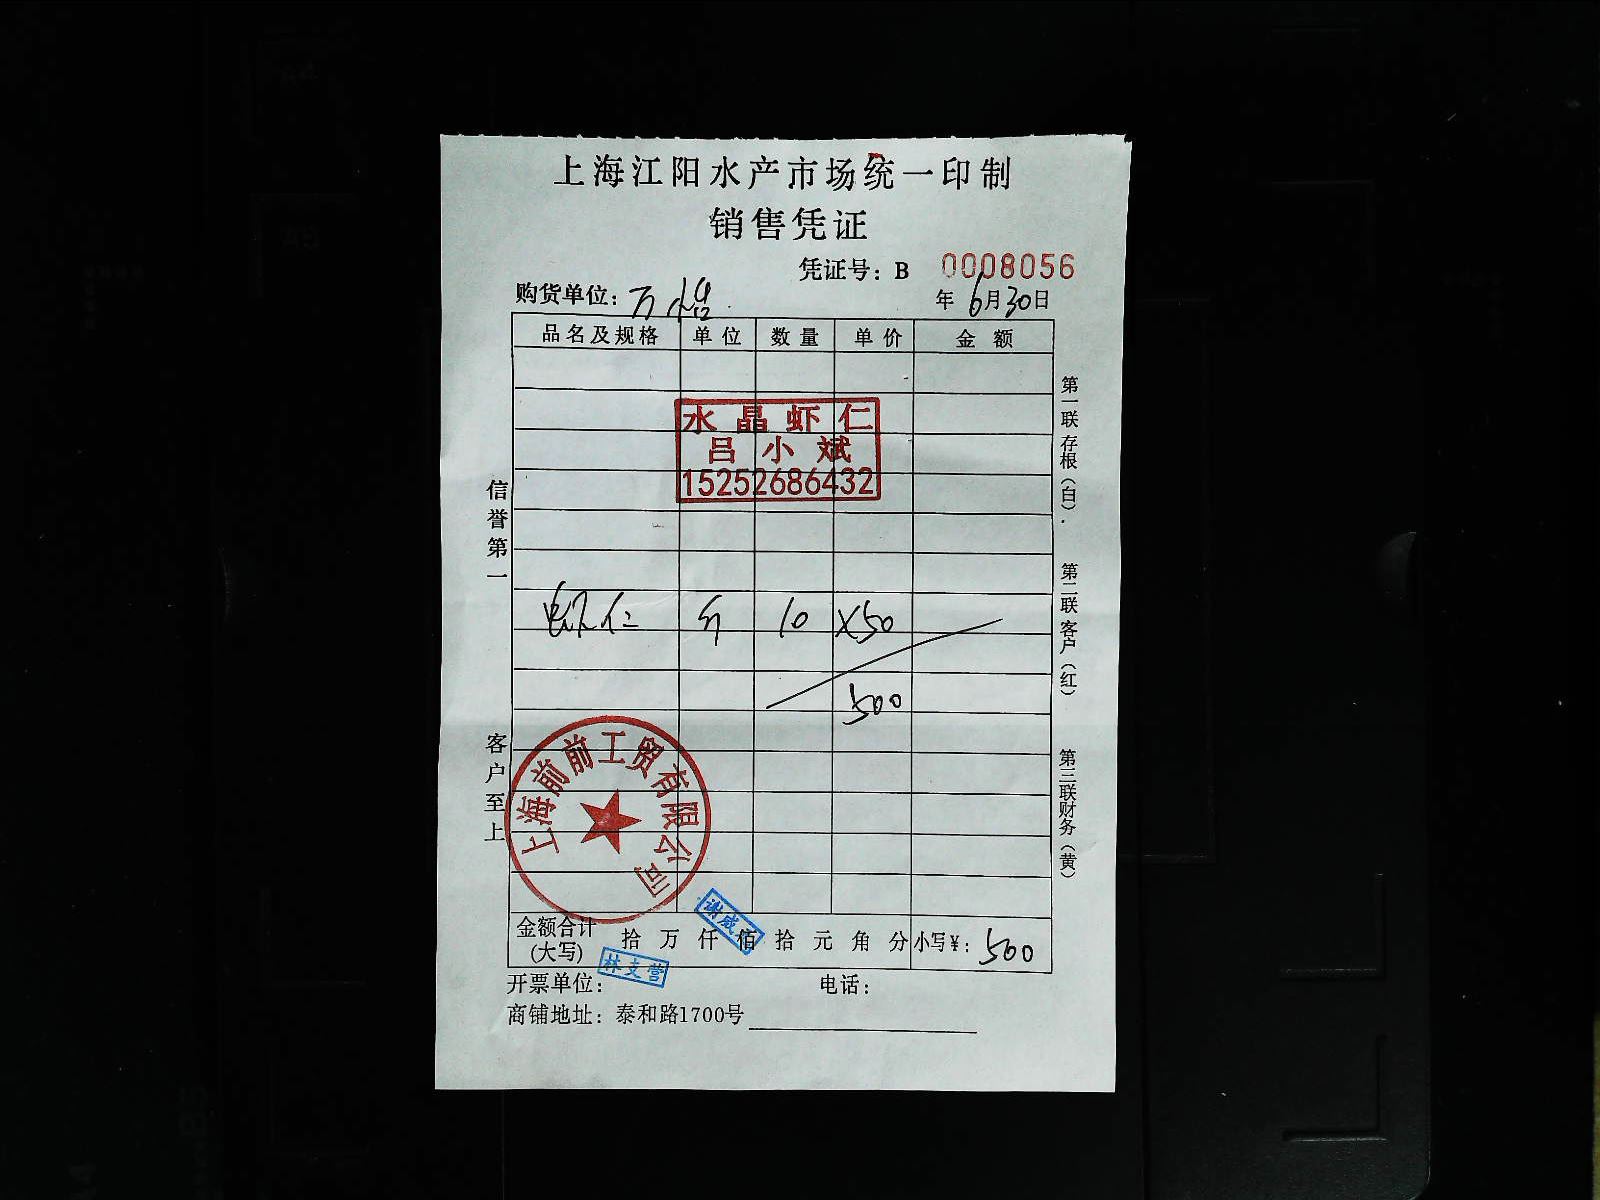 上海江阳水产市场统一印制
销售凭证
凭证号：B 0008056
购货单位：万 年 6月30日
品名及规格 单位 数量 单价 金额
水晶虾仁
吕小斌
15252686432
虾仁 斤 10 X50
500
上海前前工贸有限公司
金额合计(大写) 拾 万 仟 佰 拾 元 角 分 小写¥：500
林支营
开票单位： 电话：
商铺地址：泰和路1700号
信誉第一 客户至上
第一联 存根（白）. 第二联 客户（红） 第三联财务（黄）